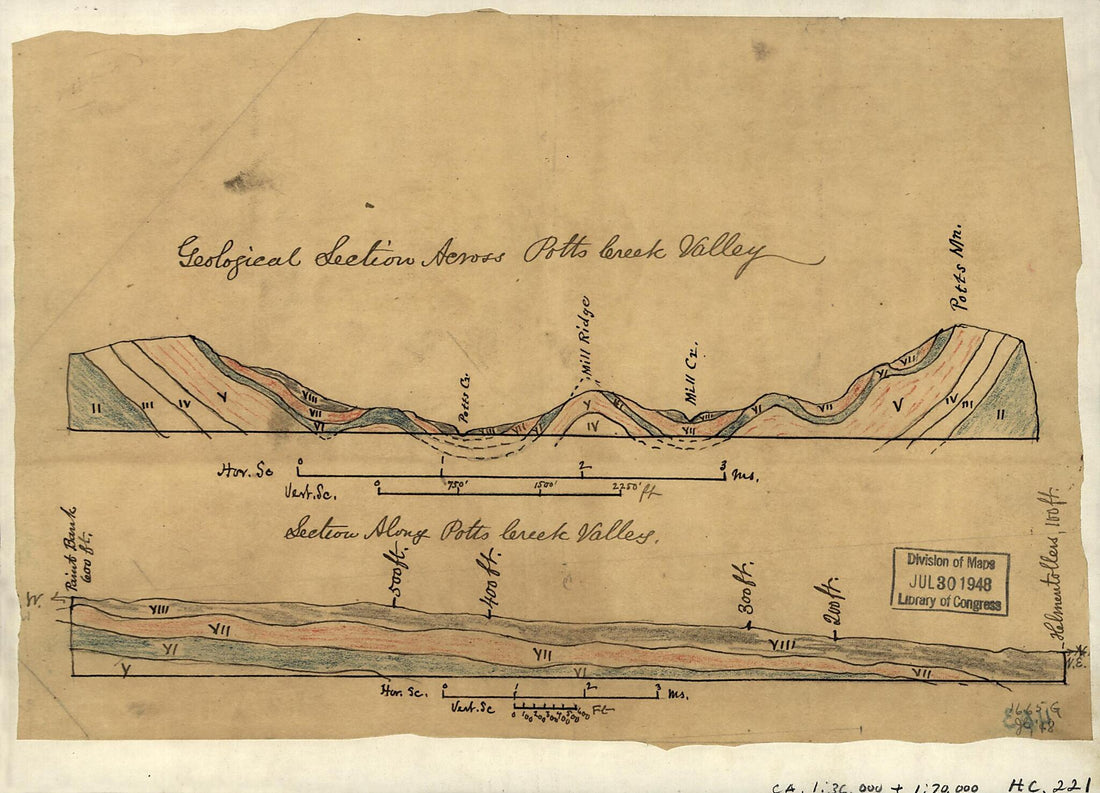 Geological Section Across Potts Creek Valley
Potts Mn.
Mill Ridge
Potts C.
Mill Cr.
II III IV V VI VII VIII
VIII VII VI V IV
VI VII VIII VI VII VI VII V IV III II
Hor. Sc 0 1 2 3 ms.
Vert. Sc. 0 750' 1500' 2250' ft
Section Along Potts Creek Valley.
Paint Bank
600 ft.
500 ft.
400 ft.
300 ft.
200 ft.
Helmentollers, 100 ft.
Division of Maps
JUL 30 1948
Library of Congress
W.
N.E.
VIII VII VI V
VII VI
VIII VII
Hor. Sc. 0 1 2 3 ms.
Vert. Sc 0 100 200 300 400 500 600 Ft
CA. 1:36,000 + 1:70,000 H C. 221